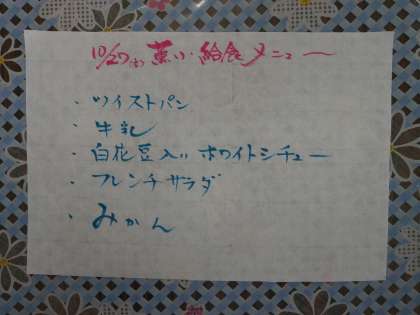 10/27(水) 薫り・給食メニュー
・ツイストパン
・牛乳
・白花豆入りホワイトシチュー
・フレンチサラダ
・みかん